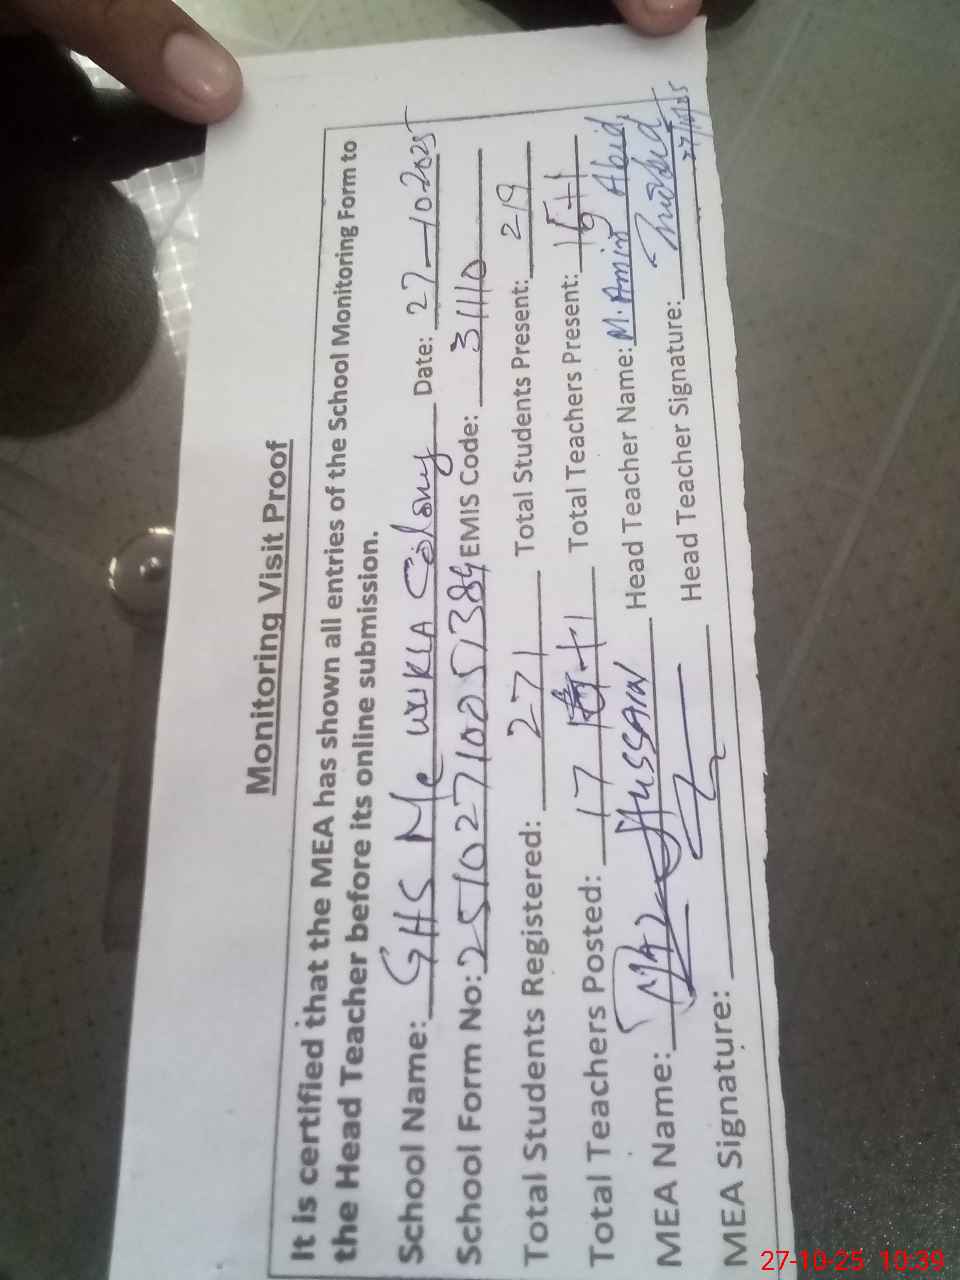 Monitoring Visit Proof
It is certified that the MEA has shown all entries of the School Monitoring Form to
the Head Teacher before its online submission.
School Name: GHS Mc WKLA Colony Date: 27-10-2025
School Form No: 25102710051384 EMIS Code: 31110
Total Students Registered: 271 Total Students Present: 219
Total Teachers Posted: 17 +1 Total Teachers Present: +1
MEA Name: HUSSAIN Head Teacher Name: M. Amin Abid
MEA Signature: Head Teacher Signature:
27-10-25 10:39